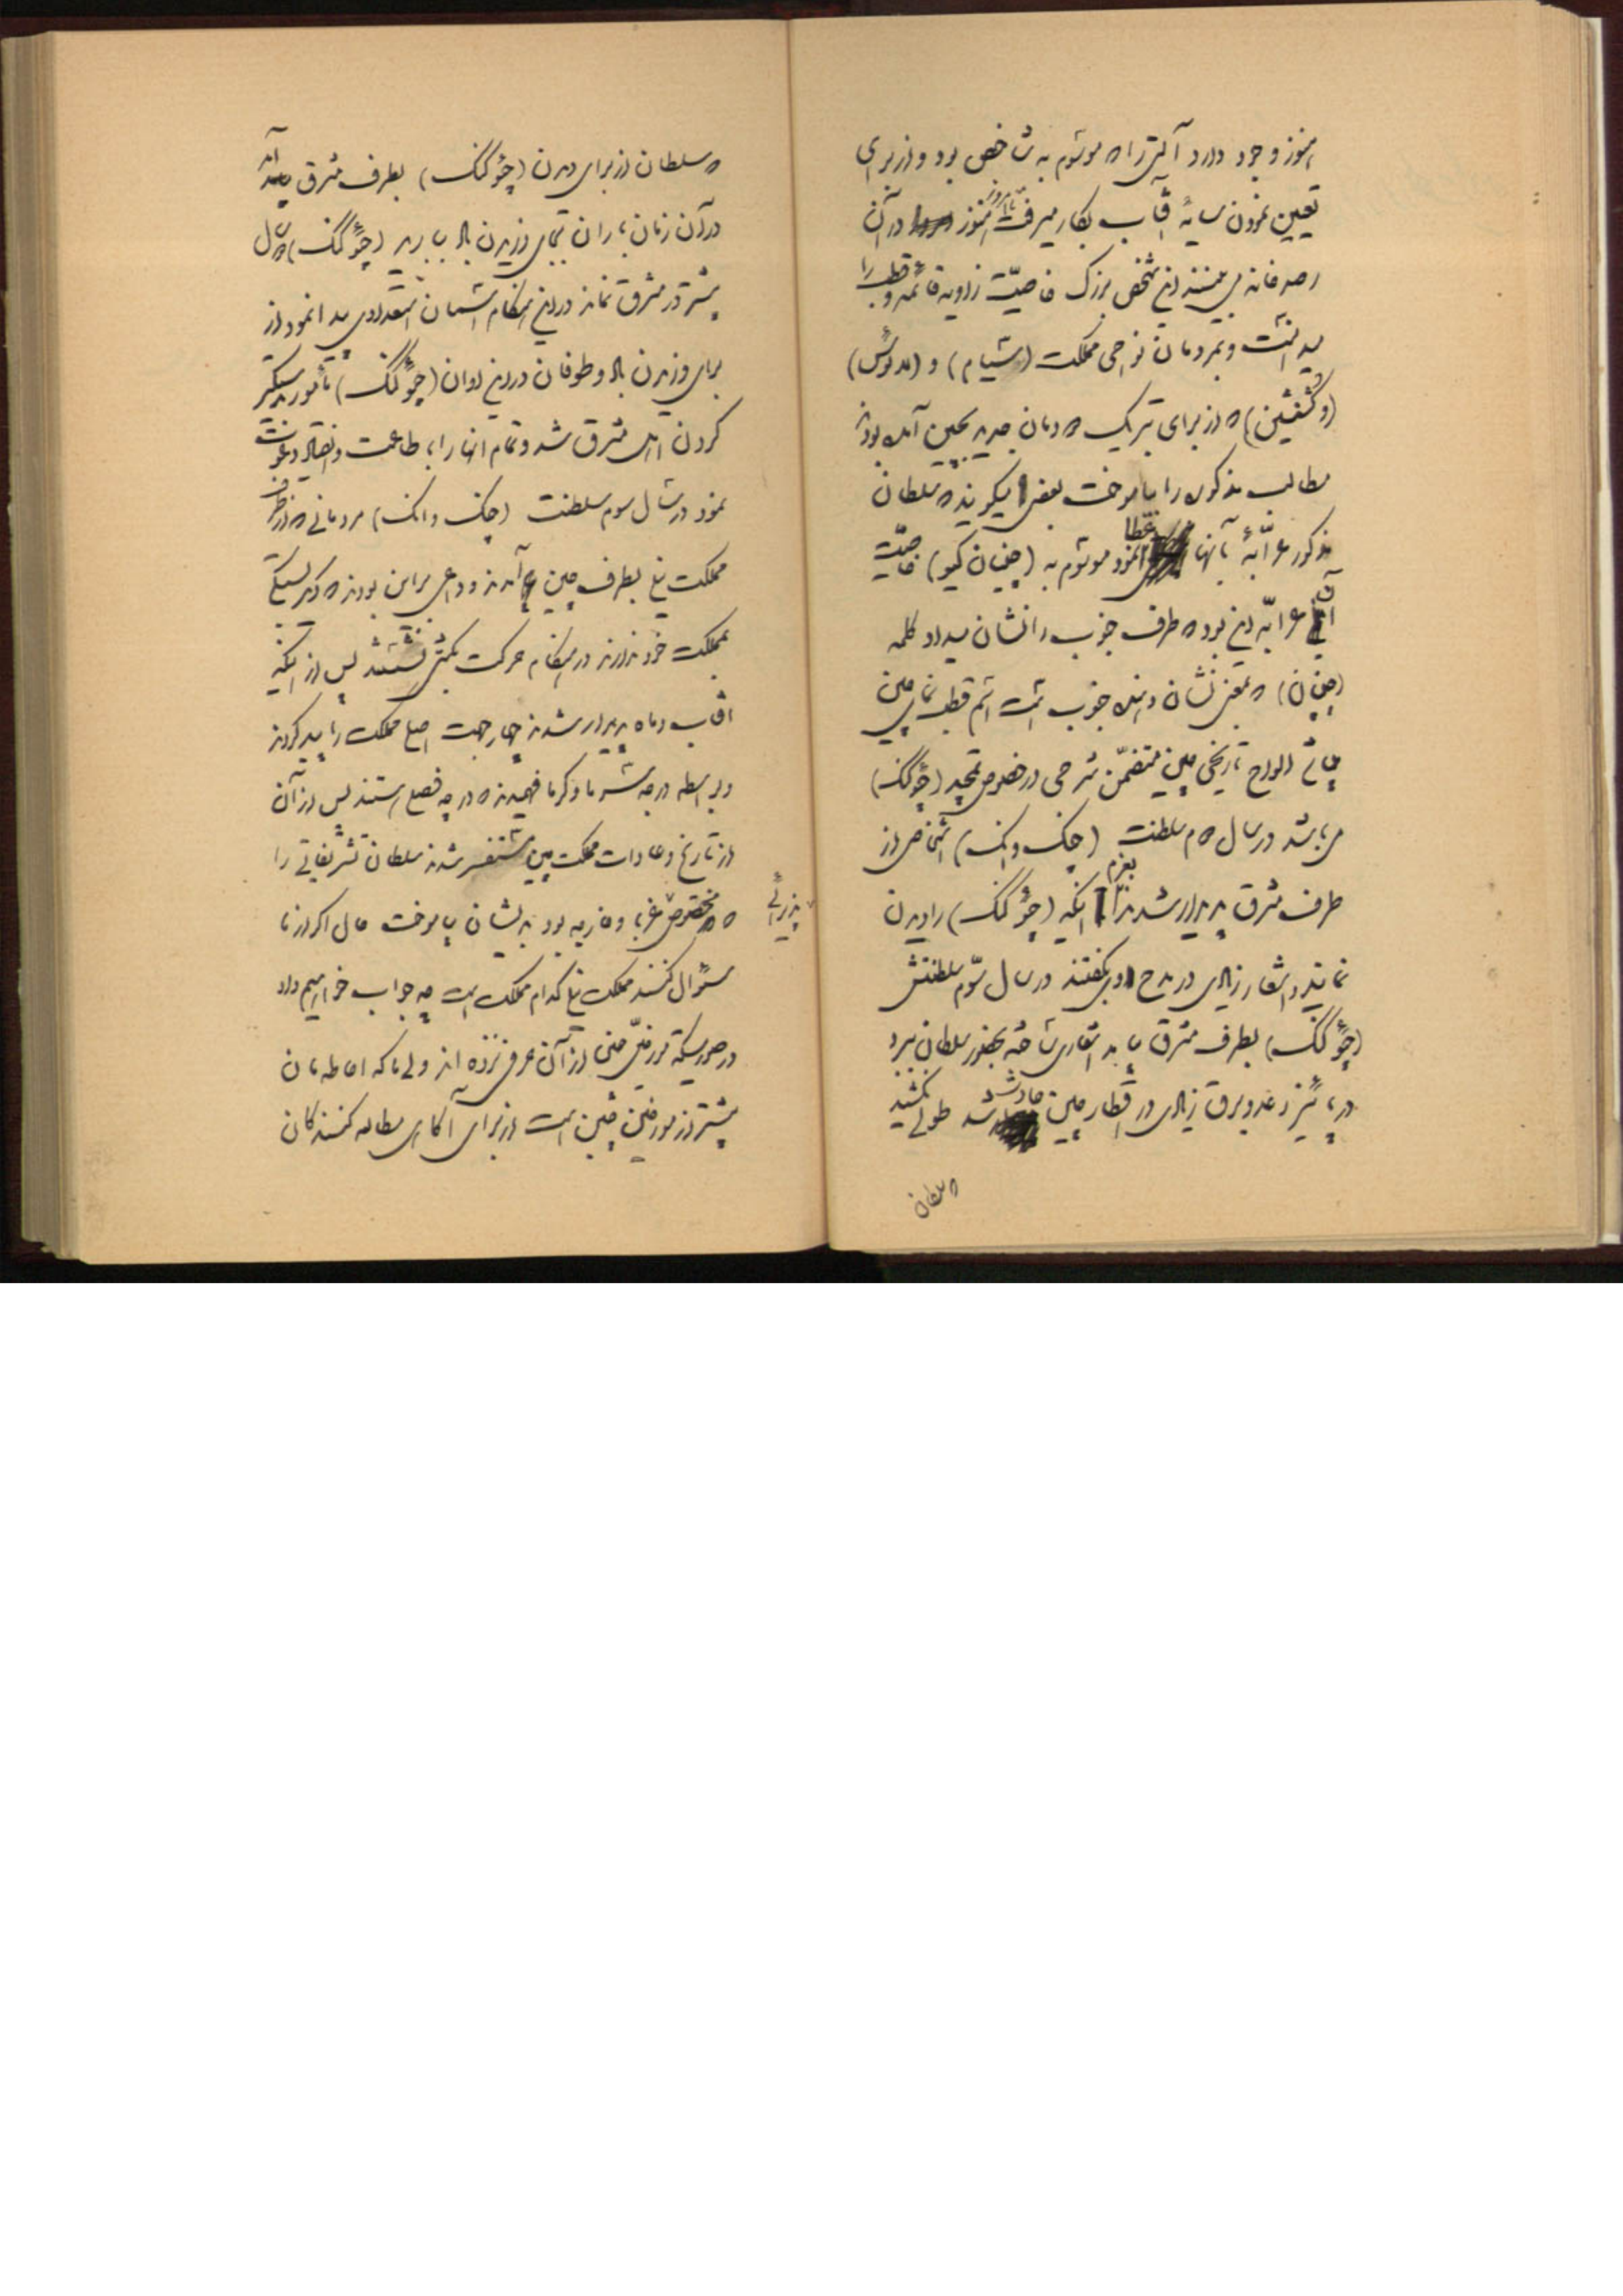 هنوز وجود دارد آلتی را که موسوم به شاخص بود و از برای
تعیین نمودن سایهٔ آفتاب بکار میرفت تا امروز هنوز در آن
رصدخانه می بینند این شخص بزرگ خاصیّت زاویه قائمه و قطب را
میدانست و بمردمان نواحی مملکت (شیام) و (لائوس)
(و کشنشین) که از برای تبریک خادمان جدید بچین آمده بودند
مطالب مذکوره را بیاموخت بعضی میگویند که سلطان
مذکور عرّابهٔ بآنها عطا نمود موسوم به (چینان کیو) خاصیّت
آن عرابه این بود که طرف جنوب را نشان میداد کلمه
(چینان) که بمعنی نشان دهنده جنوب است اسم قطب نمای چین
میباشد الواح تاریخی چین متضمّن شرحی در خصوص تمجید (چؤکنگ)
می باشد در سال دهم سلطنت (چنک وانک) اشخاصی از
طرف مشرق پدیدار شدند بعزم اینکه (چؤکنگ) را دیدن
نمایند و اشعار زیادی در مدح او بگفتند در سال سوّم سلطنتش
(چؤکنگ) بطرف مشرق بیامد اشعاری ساخته بحضور سلطان ببرد
در پائیز رعد و برق زیادی در اقطار چین حادث شد طولی نکشید
که سلطان
که سلطان از برای دیدن (چؤکنگ) بطرف مشرق آمد
در آن زمان باران بجای وزیدن باد ببارید (چؤکنگ) دو سال
بیشتر در مشرق نماند در این هنگام آسمان استعدادی پیدا نمود از
برای وزیدن باد و طوفان در این اوان (چؤکنگ) مأمور بدستگیر
کردن اهل مشرق شد و تمام آنها را باطاعت و انقیاد دعوت
نمود در سال سوم سلطنت (چنک وانک) مردمانی که از طرف
مملکت نیلی بطرف چین آمدند و داعی بر این بودند که دیگر بستگی
بمملکت خود ندارند در هنگام حرکت بکشتی نشستند پس از اینکه
آفتاب و ماه پدیدار شدند چهار جهت اصلی مملکت را پیدا کردند
و بواسطه درجه سرما و گرما فهمیدند که در چه فصلی هستند پس از آن
از تاریخ و عادات مملکت چین مستفسر شدند سلطان تشریفاتی را
که مخصوص پذیرائی غربا و خارجه بود به ایشان بیاموخت حال اگر از ما
سئوال کنند مملکت نیلی کدام مملکت است چه جواب خواهیم داد
در صورتیکه مورخین چینی از آن حرفی نزده اند ولی ما که احاطه مان
بیشتر از مورخین چین است از برای آگاهی مطالعه کنندگان